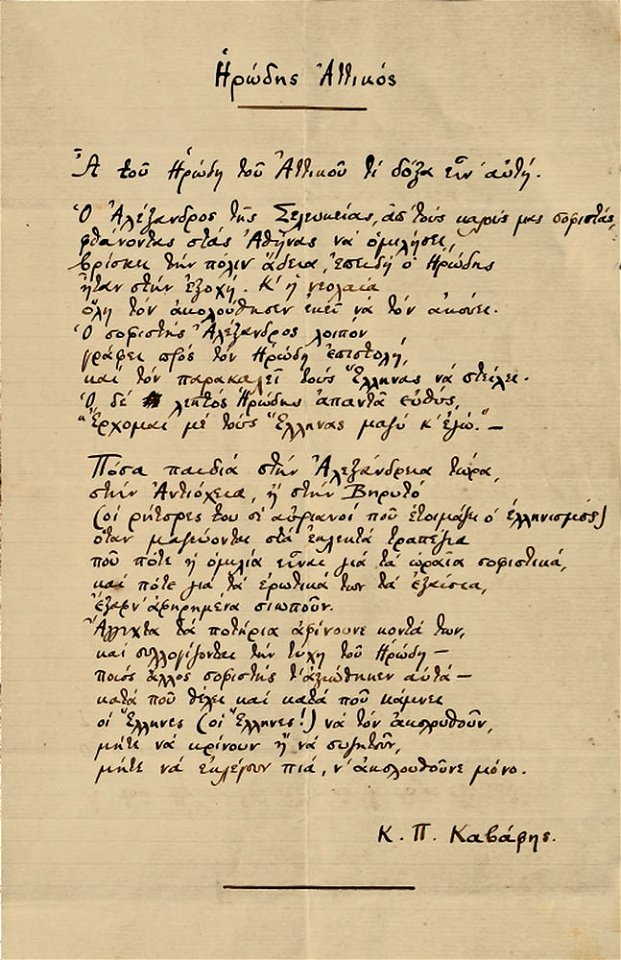 Ἡρώδης Ἀττικός
Ἆ τοῦ Ἡρώδη τοῦ Ἀττικοῦ τί δόξα εἶν' αὐτή.
Ὁ Ἀλέξανδρος τῆς Σελευκείας, ἀπ' τοὺς καλούς μας σοφιστάς,
φθάνοντας στὰς Ἀθήνας νὰ ὁμιλήσει,
βρίσκει τὴν πόλιν ἄδεια, ἐπειδὴ ὁ Ἡρώδης
ἦταν στὴν ἐξοχή. Κ' ἡ νεολαία
ὅλη τὸν ἀκολούθησεν ἐκεῖ νὰ τὸν ἀκούει.
Ὁ σοφιστὴς Ἀλέξανδρος λοιπὸν
γράφει πρὸς τὸν Ἡρώδη ἐπιστολή,
καὶ τὸν παρακαλεῖ τοὺς Ἕλληνας νὰ στείλει.
Ὁ δὲ λεπτὸς Ἡρώδης ἀπαντᾶ εὐθύς,
"Ἔρχομαι μὲ τοὺς Ἕλληνας μαζὺ κ' ἐγώ." —
Πόσα παιδιὰ στὴν Ἀλεξάνδρεια τώρα,
στὴν Ἀντιόχεια, ἢ στὴν Βηρυτὸ
(οἱ ρήτορές του οἱ αὐριανοὶ ποὺ ἑτοιμάζει ὁ ἑλληνισμὸς)
ὅταν μαζεύονται στὰ ἐκλεκτὰ τραπέζια
ποὺ πότε ἡ ὁμιλία εἶναι γιὰ τὰ ὡραῖα σοφιστικά,
καὶ πότε γιὰ τὰ ἐρωτικά των τὰ ἐξαίσια,
ἔξαφν' ἀφηρημένα σιωποῦν.
Ἄγγιχτα τὰ ποτήρια ἀφίνουνε κοντά των,
καὶ συλλογίζονται τὴν τύχη τοῦ Ἡρώδη —
ποιὸς ἄλλος σοφιστὴς τ' ἀξιώθηκεν αὐτά —
κατὰ ποῦ θέλει καὶ κατὰ ποῦ κάμνει
οἱ Ἕλληνες (οἱ Ἕλληνες!) νὰ τὸν ἀκολουθοῦν,
μήτε νὰ κρίνουν ἢ νὰ συζητοῦν,
μήτε νὰ ἐκλέγουν πιά, ν' ἀκολουθοῦνε μόνο.
Κ. Π. Καβάφης.